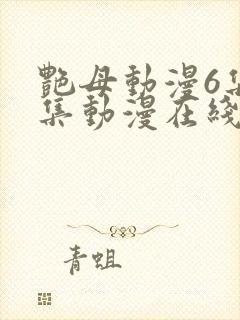 艷母動漫6集
集動漫在綫
青蛆